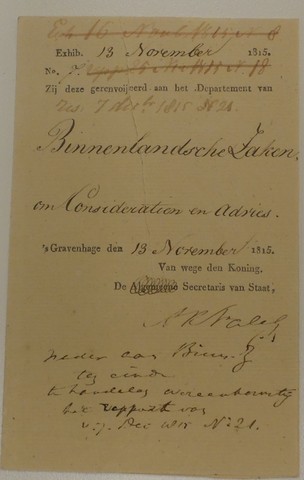 Exh. 13 November 1815.
No. 7.
Zij deze gerenvoijeerd aan het Departement van
Res. 7 Decbr 1815 No 21.
Binnenlandsche Zaken,
om Consideratien en Advies.
's Gravenhage den 13 November 1815.
Van wege den Koning.
De Algemeene Secretaris van Staat,
A R Falck
weder aan Binn. Z
te handelen overeenkomstig
het rapport van
v. 7. Dec No. 21.